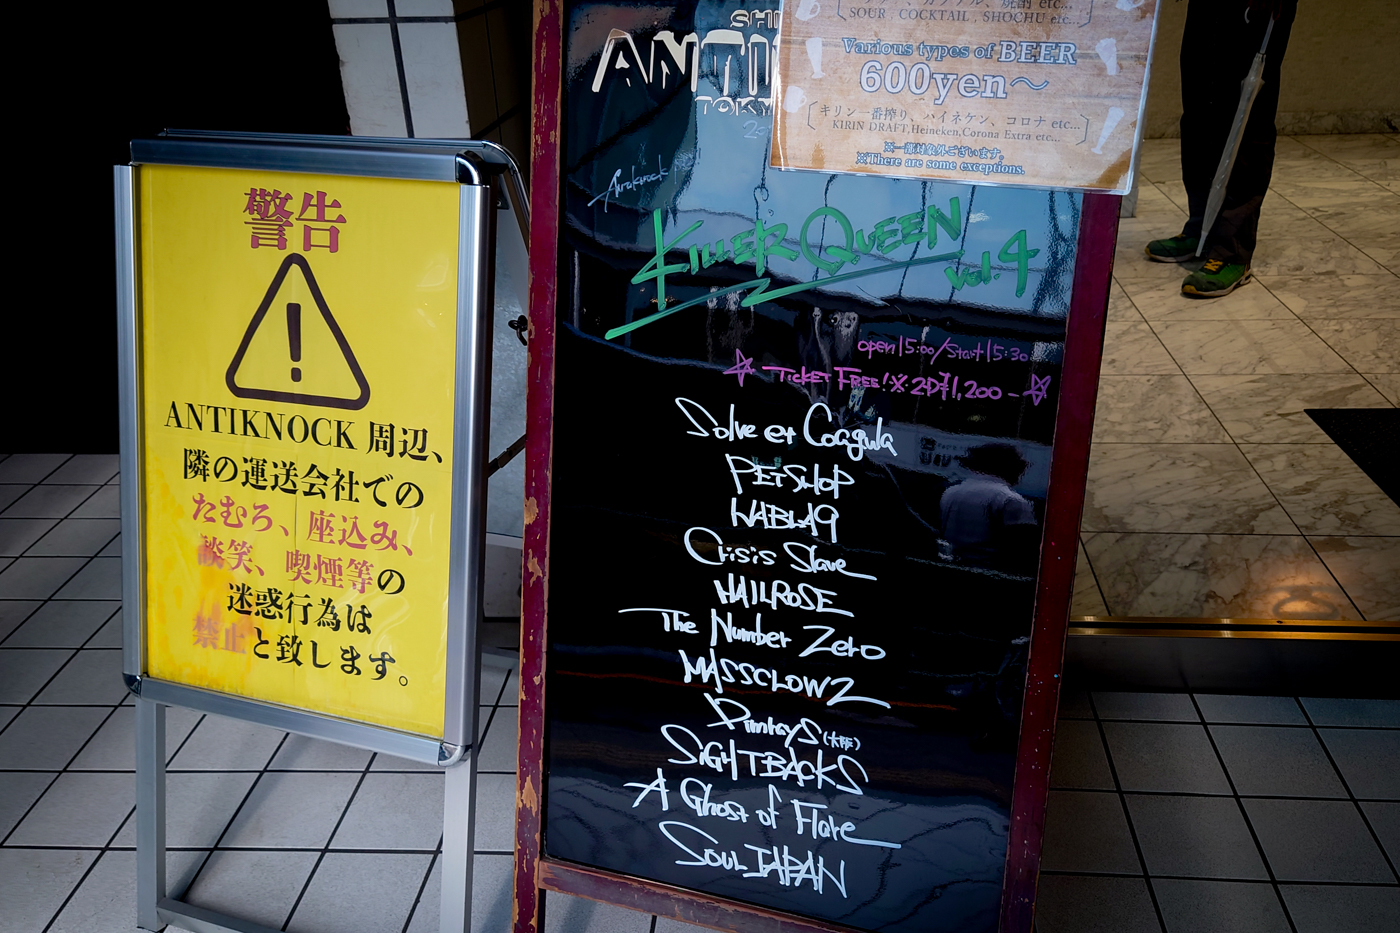 警告
ANTIKNOCK 周辺、
隣の運送会社での
たむろ、座込み、
談笑、喫煙等の
迷惑行為は
禁止と致します。
SHI
ANTI
TOKY
SOUR , COCKTAIL , SHOCHU etc...
Various types of BEER
600yen～
キリン一番搾り、ハイネケン、コロナ etc...
KIRIN DRAFT,Heineken,Corona Extra etc...
※一部対象外ございます。
※There are some exceptions.
Antiknock
KILLER QUEEN
vol.4
open15:00/Start15:30
☆ TICKET FREE!※2D¥1,200- ☆
Solve et Coagula
PETSHOP
Crisis Slave
HAILROSE
The Number Zero
MASSCLOWZ
(大阪)
SIGHTBACKS
A Ghost of Flare
SOUL JAPAN